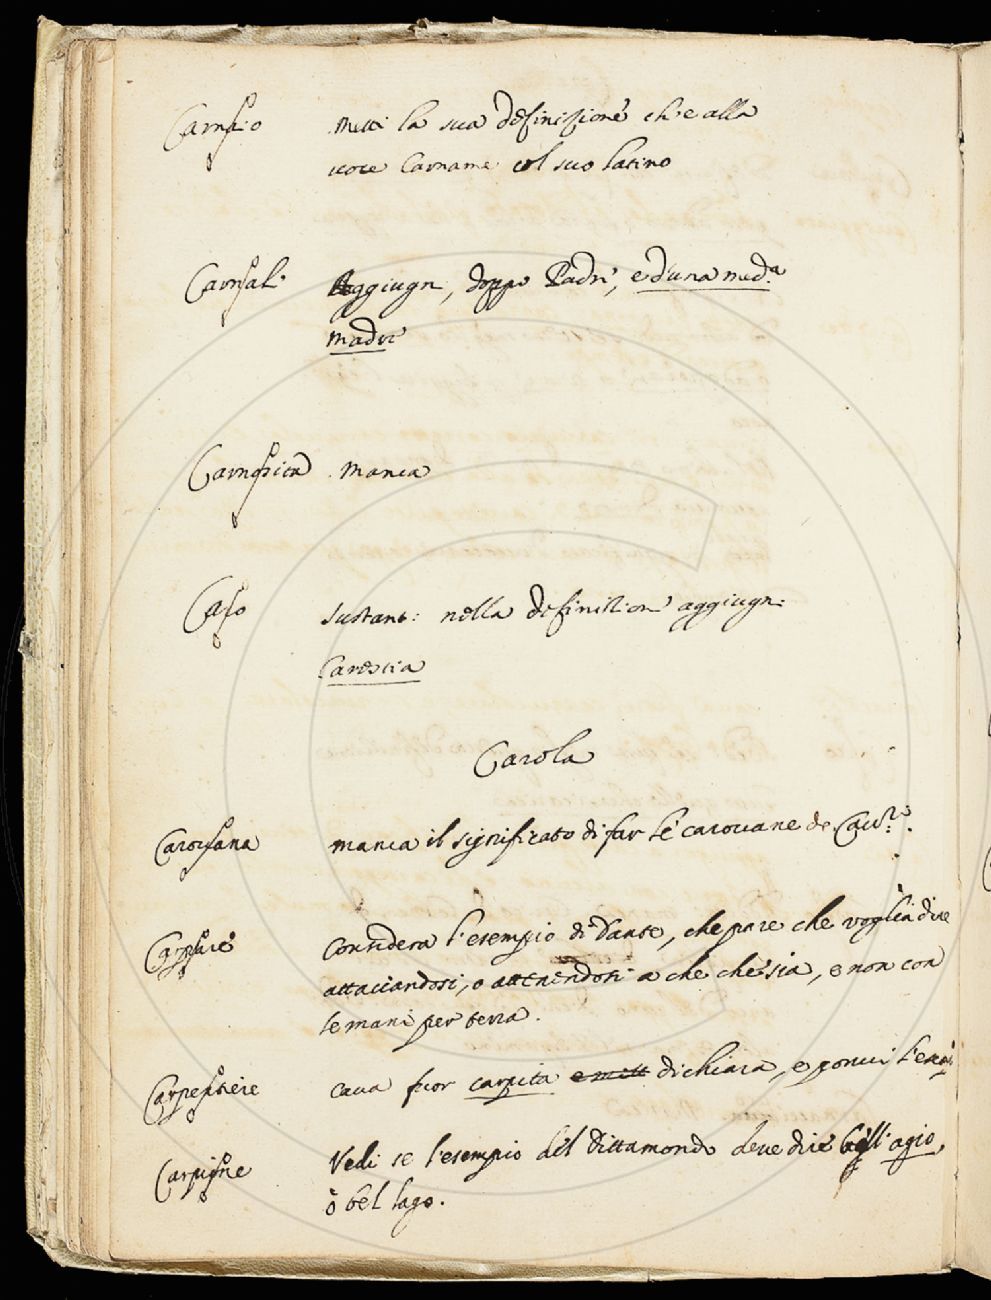 Carnaio metti la sua definizione ch'è alla
voce Carname col suo latino
Carnale Aggiugni, doppo Padre, e d'una med.a
madre
Carnosità manca
Caro sustant: nella definizione aggiugn:
Carestia
Carola
Carovana manca il significato di far le carovane de Cav.ri.
Carpare Considera l'esempio di Dante, che pare che voglia dire
attaccandosi, o attenendosi a che che sia, e non con
le mani per terra.
Carpentiere cava fuor carpita e mett dichiara, e ponvi l'esemp
Carpigne Vedi se l'esempio del Dittamondo deve dire begli agio,
ò bel lago.